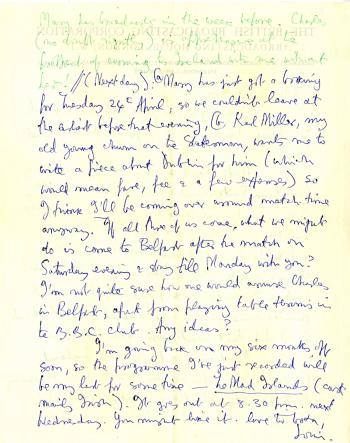 Mary has broadcasts in the week before. Charles
(no doubt
prospect of coming to Ireland with me without
her! // (Next day). (a) Mary has just got a booking
for Tuesday 24th April, so we couldn't leave at
the earliest before that evening, (b) Karl Miller, my
old young chum on the Statesman, wants me to
write a piece about Dublin for him (which
would mean fare, fee & a few expenses) so
I think I'll be coming over around match time
anyway. If all three of us come, what we might
do is come to Belfast after the match on
Saturday evening & stay till Monday with you?
I'm not quite sure how one would amuse Charles
in Belfast, apart from playing table tennis in
the B.B.C. club. Any ideas?
I'm going back on my six months off
soon, so the programme I've just recorded will
be my last for some time — The Mad Islands (cast
mainly Irish). It goes out at 8.30 p.m. next
Wednesday. You might like it. Love to both,
THE BRITISH BROADCASTING CORPORATION